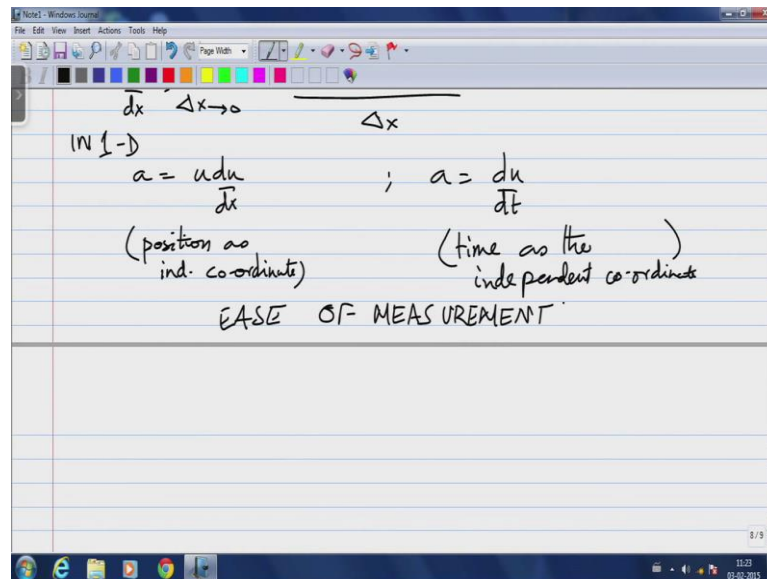 Note1 - Windows Journal
File Edit View Insert Actions Tools Help
Page Width
d/dx Δx→0
Δx
IN 1-D
a = u du/dx ; a = du/dt
(position as (time as the )
ind. co-ordinate) independent co-ordinate
EASE OF MEASUREMENT
8/9
11:23
03-02-2015